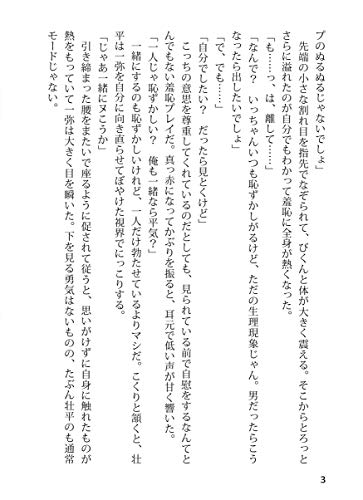 プのぬるぬるじゃないでしょ」
　先端の小さな割れ目を指先でなぞられて、びくんと体が大きく震える。そこからとろっと
さらに溢れたのが自分でもわかって羞恥に全身が熱くなった。
「も……っ、は、離して……」
「なんで？　いっちゃんいつも恥ずかしがるけど、ただの生理現象じゃん。男だったらこう
なったら出したいでしょ」
「で、でも……」
「自分でしたい？　だったら見とくけど」
　こっちの意思を尊重してくれているのだとしても、見られている前で自慰をするなんてと
んでもない羞恥プレイだ。真っ赤になってかぶりを振ると、耳元で低い声が甘く響いた。
「一人じゃ恥ずかしい？　俺も一緒なら平気？」
　一緒にするのも恥ずかしいけれど、一人だけ勃たせているよりマシだ。こくりと頷くと、壮
平は一弥を自分に向き直らせてぼやけた視界でにっこりする。
「じゃあ一緒にヌこうか」
　引き締まった腰をまたいで座るように促されて従うと、思いがけずに自身に触れたものが
熱をもっていて一弥は大きく目を瞬いた。下を見る勇気はないものの、たぶん壮平のも通常
モードじゃない。
3